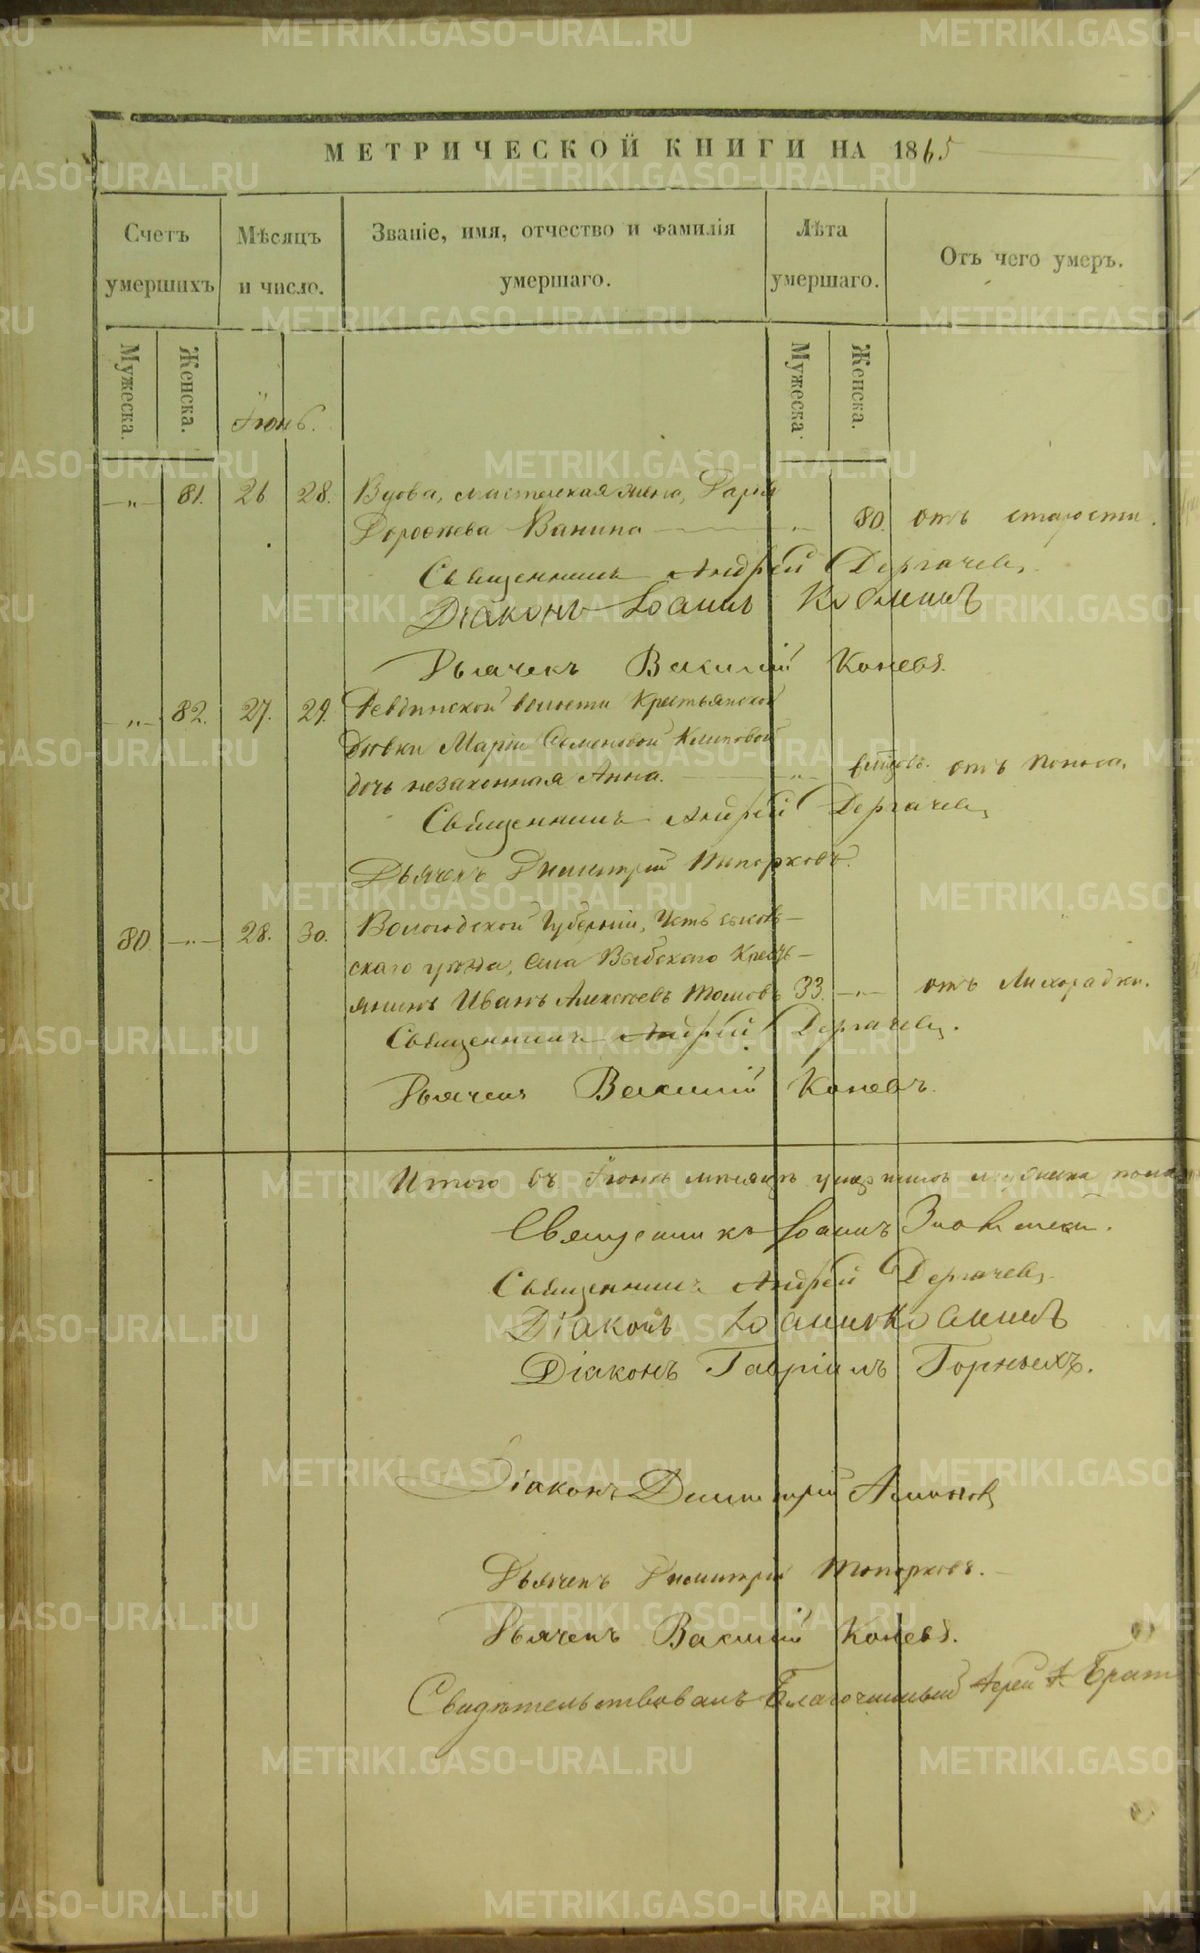 МЕТРИЧЕСКОЙ КНИГИ НА 1865
Счетъ умершихъ
Мѣсяцъ и число.
Званіе, имя, отчество и фамилія умершаго.
Лѣта умершаго.
Отъ чего умеръ.
Мужеска.
Женска.
Мужеска.
Женска.
Іюнь.
-„- 81. 26 28. Вдова, мастерская жена, Дарья
Дорофеева Ванина -„- 80. отъ старости.
Священникъ Андрей Дергачевъ,
Діаконъ Іоаннъ Косминъ
Дьячекъ Василій Коневъ.
-„- 82. 27. 29. Ревдинской волости Крестьянской
дѣвки Маріи Семеновой Климовой
дочь незаконная Анна. -„- отъ поноса.
Священникъ Андрей Дергачевъ
Дьячекъ Димитрій Топорковъ.
80. -„- 28. 30. Вологодской Губерніи, Усть сысоль-
скаго уѣзда, села Кресть-
янинъ Иванъ Алексѣевъ 33. -„- отъ Лихорадки.
Священникъ Андрей Дергачевъ.
Дьячекъ Василій Коневъ.
Итого въ Іюнѣ мѣсяцѣ умершихъ мужеска пола
Священникъ Іоаннъ
Священникъ Андрей Дергачевъ.
Діаконъ Іоаннъ Косминъ
Діаконъ Гавріилъ Горныхъ.
Діаконъ Димитрій
Дьячекъ Димитрій Топорковъ.
Дьячекъ Василій Коневъ.
Свидѣтельствовалъ Благочинный Іерей
METRIKI.GASO-URAL.RU